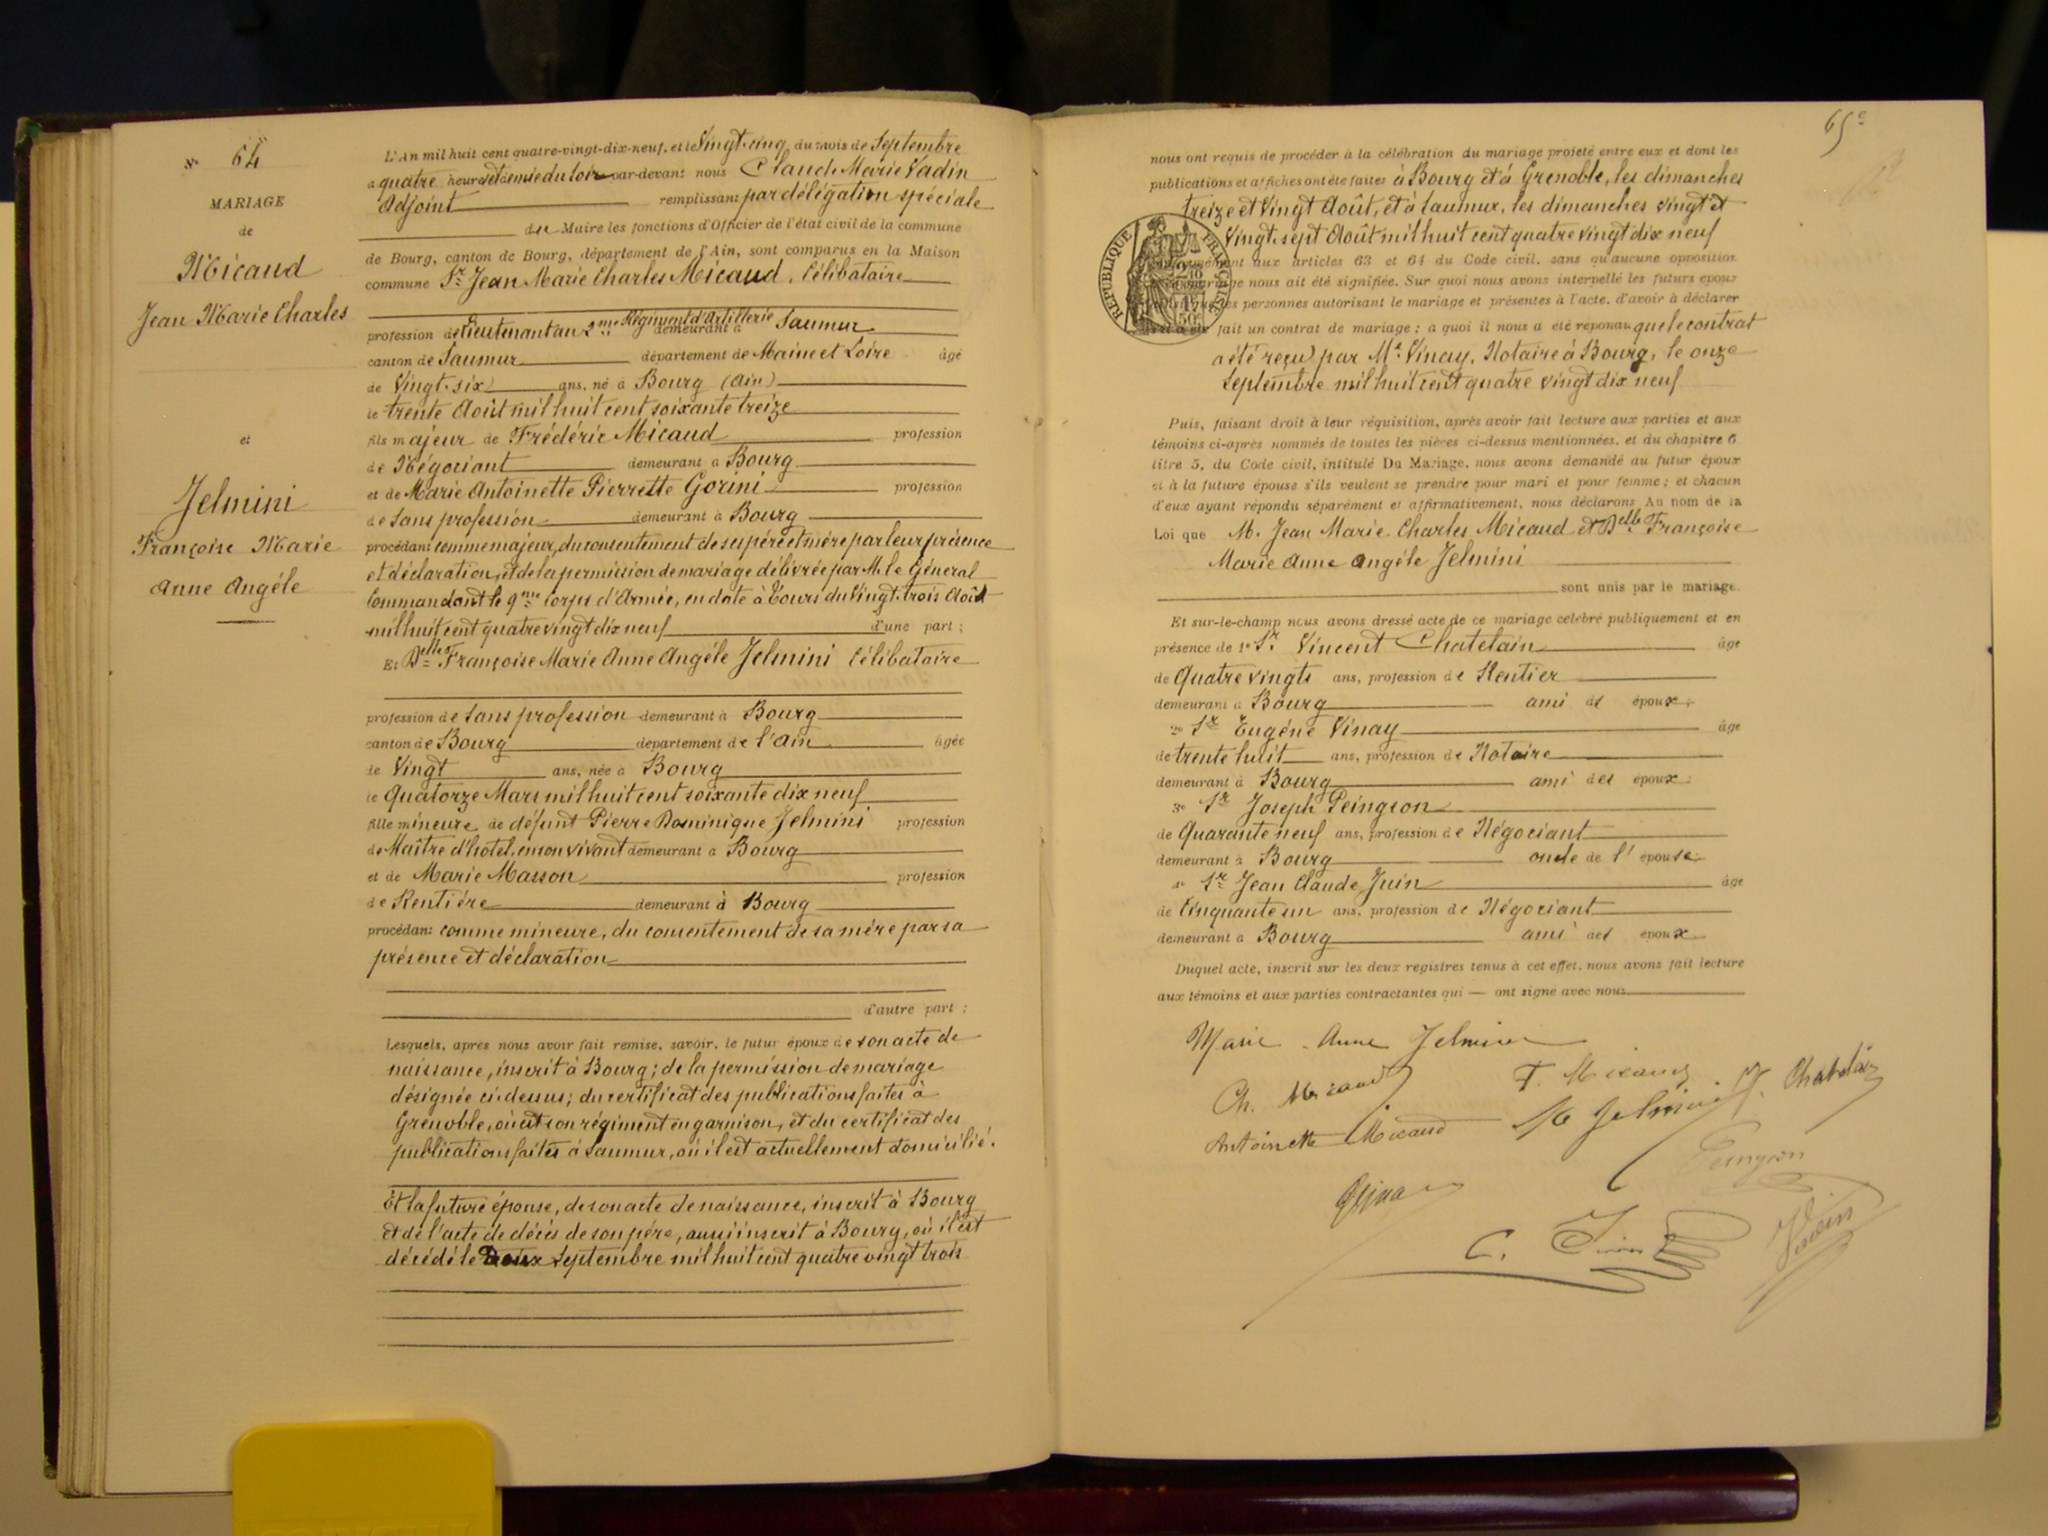 N° 64
MARIAGE
de
Micaud
Jean Marie Charles
et
Jelmini
Françoise Marie
Anne Angéle
L'An mil huit cent quatre-vingt-dix-neuf, et le Vingt-cinq du mois de Septembre
a quatre heures et demie du soir par-devant nous Claude Marie Vadin
Adjoint remplissant par délégation spéciale
du Maire les fonctions d'Officier de l'état civil de la commune
de Bourg, canton de Bourg, département de l'Ain, sont comparus en la Maison
commune Sr Jean Marie Charles Micaud, Célibataire
profession de Lieutenant au 2me Régiment d'Artillerie demeurant à Saumur
canton de Saumur département de Maine et Loire âgé
de Vingt-six ans, né à Bourg (Ain)
le trente Août mil huit cent soixante treize
fils majeur de Frédéric Micaud profession
de Négociant demeurant à Bourg
et de Marie Antoinette Pierrette Gorini profession
de Sans profession demeurant à Bourg
procédant comme majeur, du consentement de ses père et mère par leur présence
et déclaration, et de la permission de mariage délivrée par M. le Général
Commandant le 9me Corps d'Armée, en date à Tours du Vingt-trois Août
mil huit cent quatre vingt dix neuf d'une part ;
Et Delle Françoise Marie Anne Angéle Jelmini Célibataire
profession de Sans profession demeurant à Bourg
canton de Bourg département de l'Ain âgée
de Vingt ans, née à Bourg
le Quatorze Mars mil huit cent soixante dix neuf
fille mineure de défunt Pierre Dominique Jelmini profession
de Maître d'hotel, en son vivant demeurant à Bourg
et de Marie Masson profession
de Rentiére demeurant à Bourg
procédant comme mineure, du consentement de sa mére par sa
présence et déclaration
d'autre part ;
Lesquels, après nous avoir fait remise, savoir, le futur époux de son acte de
naissance, inscrit à Bourg ; de la permission de mariage
désignée ci-dessus ; du certificat des publications faites à
Grenoble, où est son régiment en garnison, et du certificat des
publications faites à Saumur, où il est actuellement domicilié.
Et la future épouse, de son acte de naissance, inscrit à Bourg
et de l'acte de décès de son pére, aussi inscrit à Bourg, où il est
décédé le Deux Septembre mil huit cent quatre vingt trois
65e
nous ont requis de procéder à la célébration du mariage projeté entre eux et dont les
publications et affiches ont été faites à Bourg et à Grenoble, les dimanches
treize et Vingt Août, et à Saumur, les dimanches vingt et
Vingt-sept Août mil huit cent quatre vingt dix neuf
aux articles 63 et 64 du Code civil, sans qu'aucune opposition
nous ait été signifiée. Sur quoi nous avons interpellé les futurs époux
les personnes autorisant le mariage et présentes à l'acte, d'avoir à déclarer
fait un contrat de mariage ; à quoi il nous a été répondu que le contrat
a été reçu par Me Vinay, Notaire à Bourg, le onze
Septembre mil huit cent quatre vingt dix neuf
RÉPUBLIQUE FRANÇAISE
Puis, faisant droit à leur réquisition, après avoir fait lecture aux parties et aux
témoins ci-après nommés de toutes les pièces ci-dessus mentionnées, et du chapitre 6
titre 5, du Code civil, intitulé Du Mariage, nous avons demandé au futur époux
et à la future épouse s'ils veulent se prendre pour mari et pour femme ; et chacun
d'eux ayant répondu séparément et affirmativement, nous déclarons Au nom de la
Loi que M. Jean Marie Charles Micaud et Delle Françoise
Marie Anne Angéle Jelmini
sont unis par le mariage.
Et sur-le-champ nous avons dressé acte de ce mariage célébré publiquement et en
présence de 1° Sr. Vincent Chatelain âgé
de Quatre vingts ans, profession de Rentier
demeurant à Bourg ami des époux ;
2° Sr Eugéne Vinay âgé
de trente huit ans, profession de Notaire
demeurant à Bourg ami des époux ;
3° Sr Joseph Peingeon
de Quarante neuf ans, profession de Négociant
demeurant à Bourg oncle de l'épouse
4° Sr Jean Claude Juin âgé
de Cinquante un ans, profession de Négociant
demeurant à Bourg ami des époux
Duquel acte, inscrit sur les deux registres tenus à cet effet, nous avons fait lecture
aux témoins et aux parties contractantes qui — ont signé avec nous
Marie Anne Jelmini
Ch. Micaud F. Micaud V. Chatelain
Antoinette Micaud M Jelmini
Peingeon
C. Juin Vadin